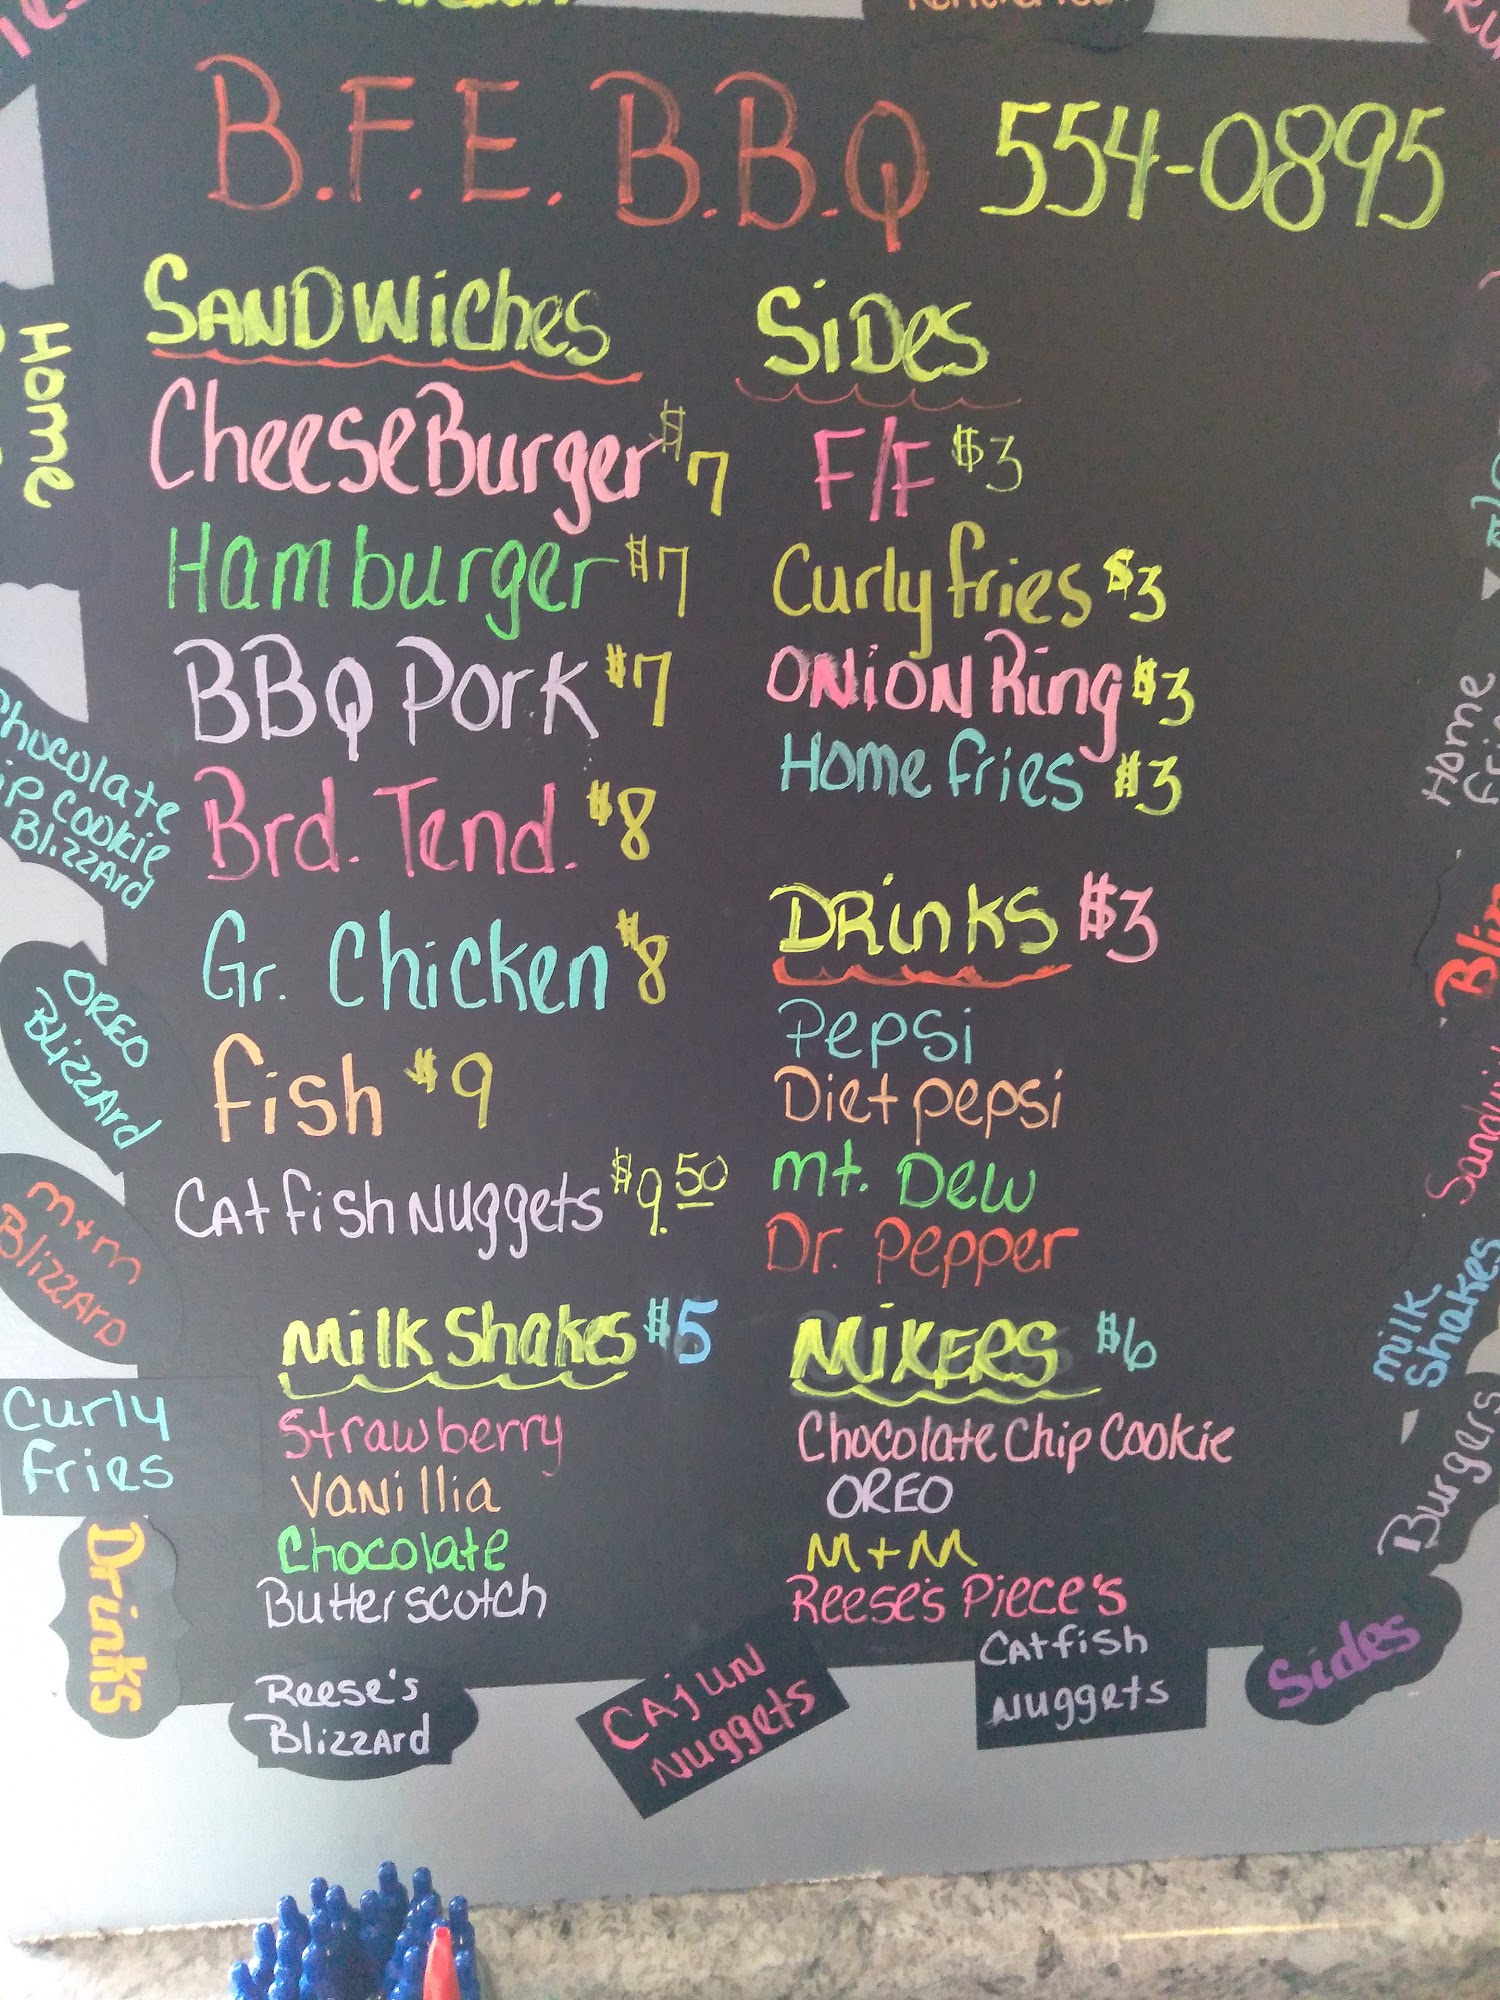 B.F.E. B.B.Q 554-0895
SANDWiches
CheeseBurger $7
Hamburger $7
BBQ Pork $7
Brd. Tend. $8
Gr. Chicken $8
fish $9
CAtfishNuggets $9.50
Milk Shakes $5
Strawberry
VANillia
Chocolate
Butterscotch
SiDes
F/F $3
Curly fries $3
ONiON Ring $3
Home fries $3
DRinKS $3
Pepsi
Diet pepsi
mt. Dew
Dr. Pepper
MiXERS $6
Chocolate Chip Cookie
OREO
M+M
Reese's Piece's
Home
Chocolate
Cookie
Blizzard
OREO
Blizzard
m+m
Blizzard
Curly
fries
Drinks
Reese's
Blizzard
CAjUN
Nuggets
CAtfish
Nuggets
Sides
Burgers
milk
Shakes
Home